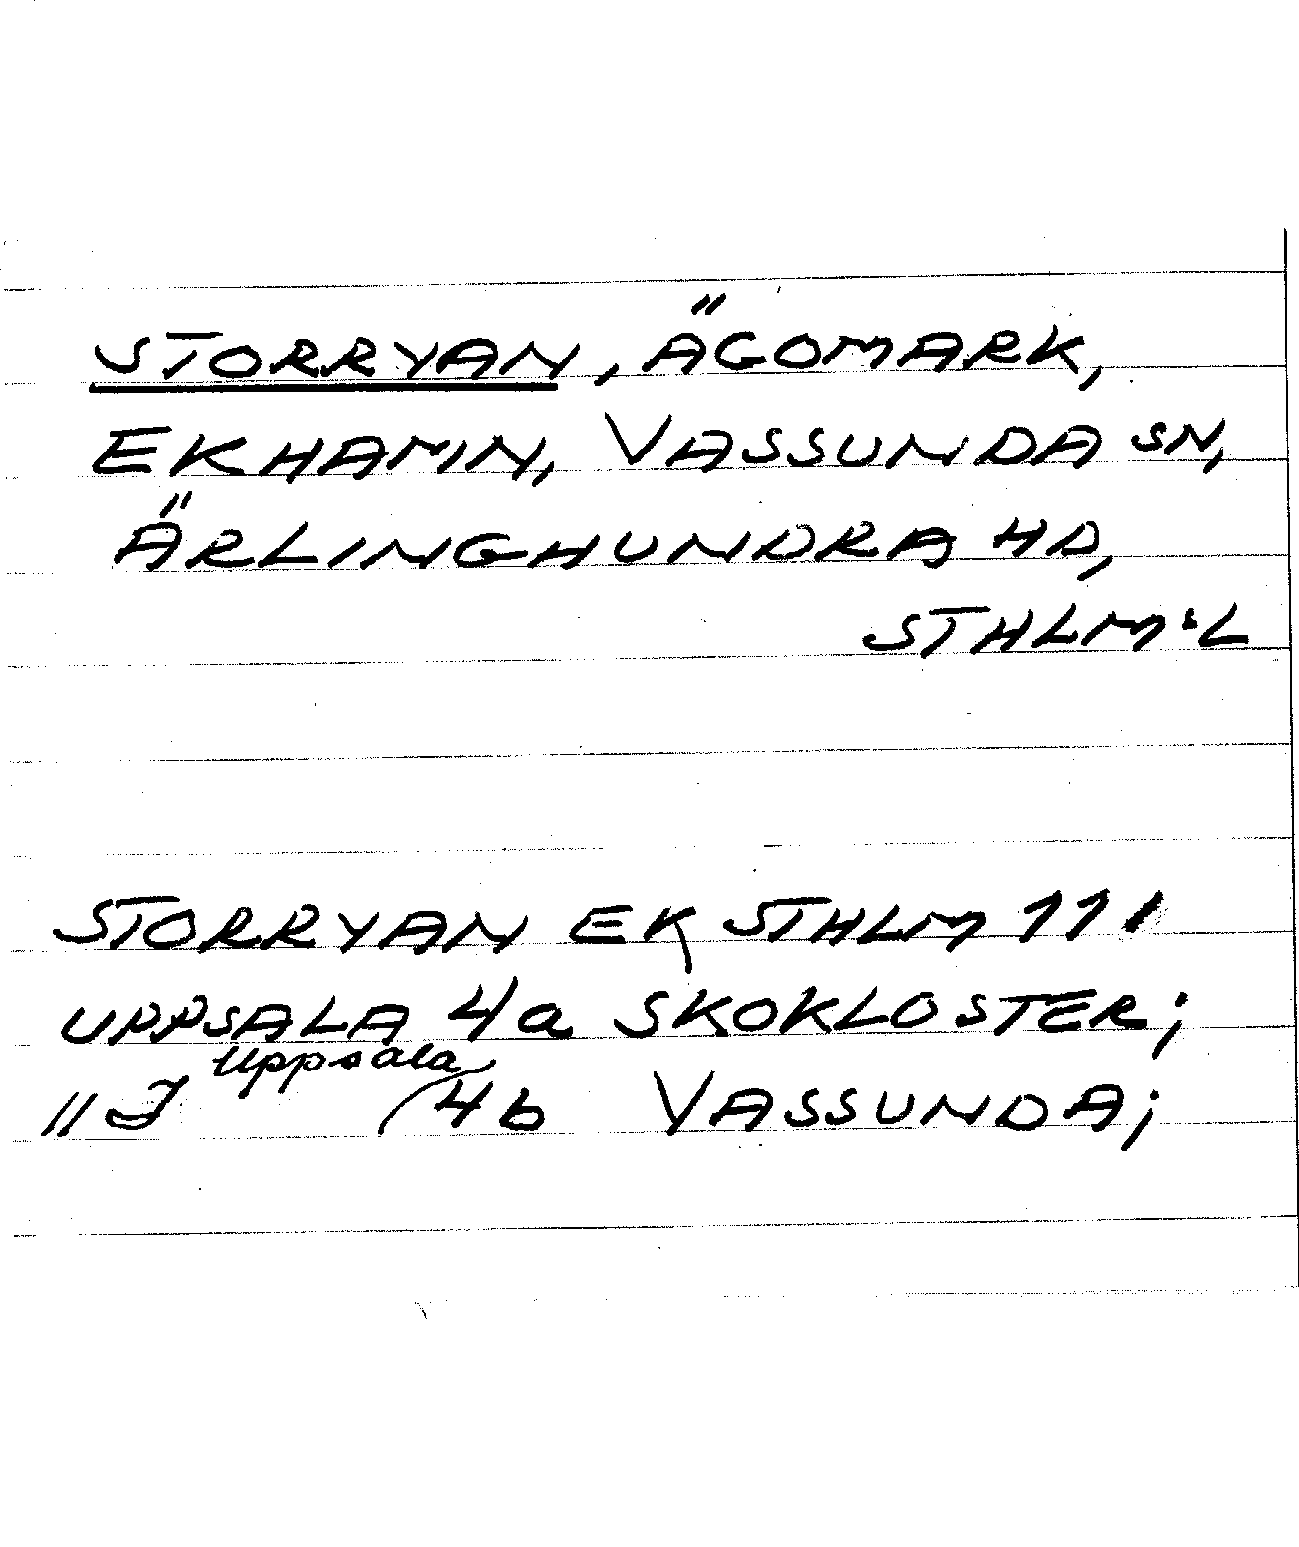 STORRYAN, ÄGOMARK,
EKHAMN, VASSUNDA SN,
ÄRLINGHUNDRA HD,
STHLM:L
STORRYAN EK STHLM 111
UPPSALA 4a SKOKLOSTER;
Uppsala
"J 4b VASSUNDA;